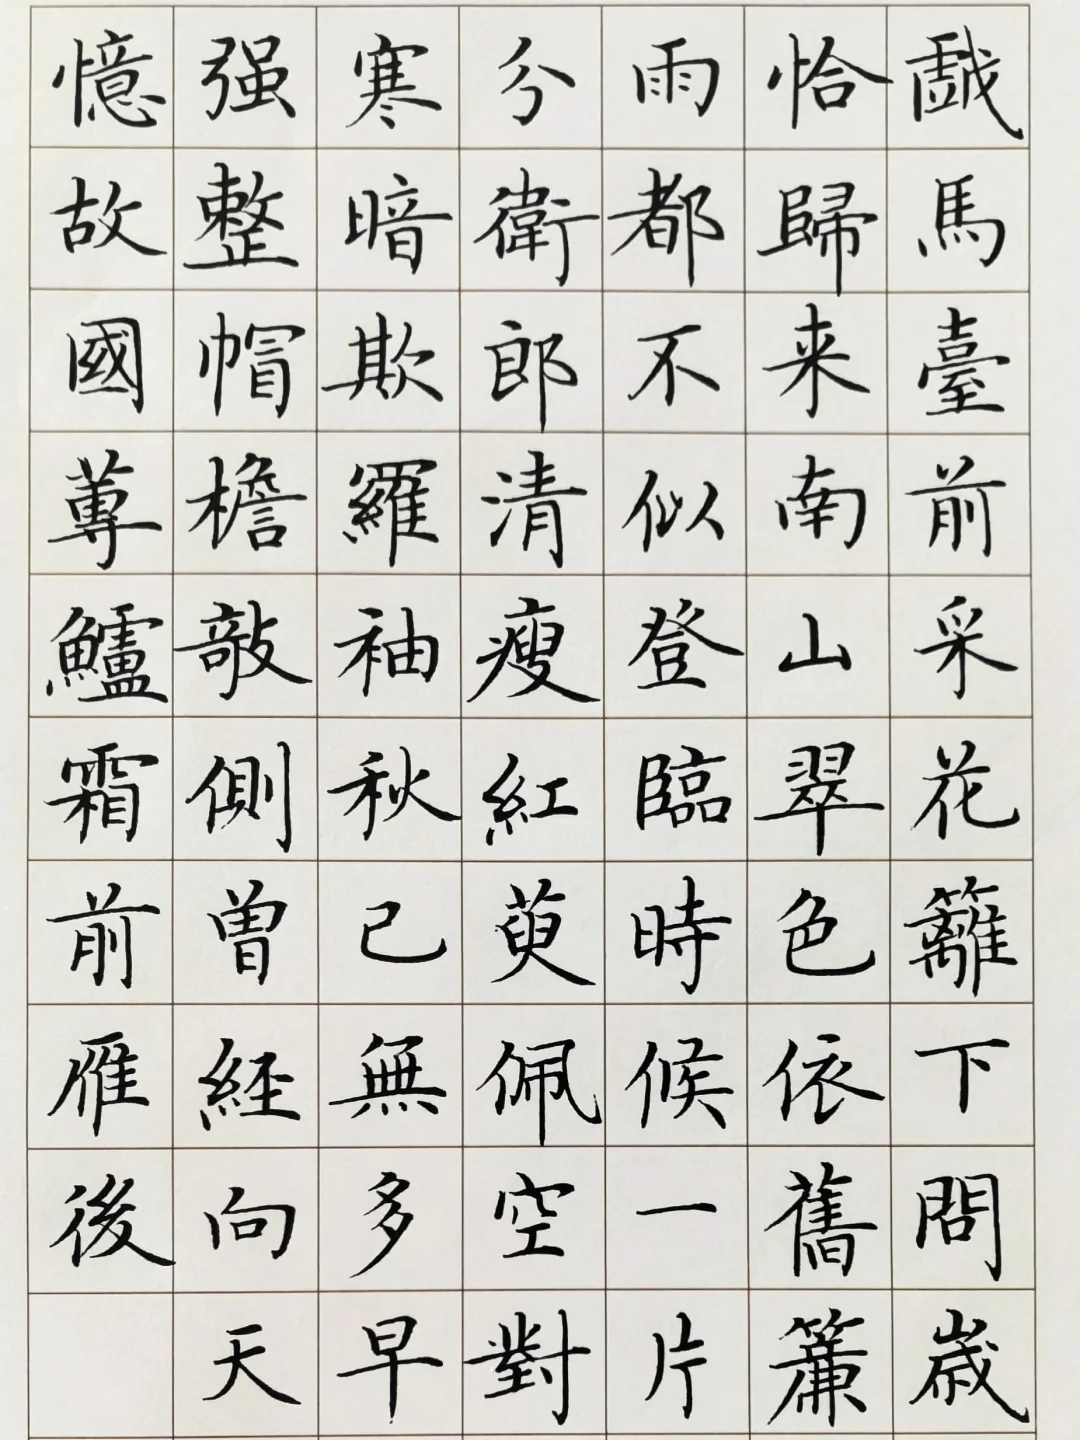 戲馬臺前采花籬下問歲
恰歸来南山翠色依舊簾
雨都不似登臨時候一片
分衛郎清瘦紅萸佩空對
寒暗欺羅袖秋已無多早
强整帽檐敧側曾経向天
憶故國蓴鱸霜前雁後